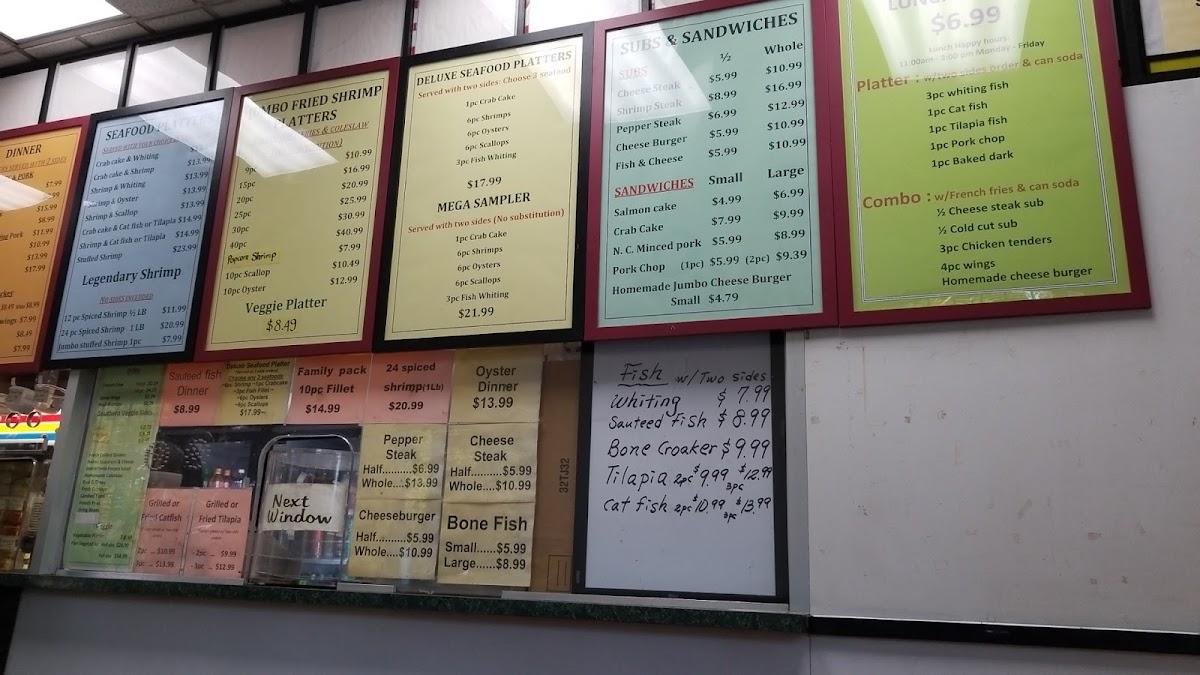 DINNER
$7.99
$15.99
$8.99
Pork $11.99
$10.99
$13.99
$17.99
$8.49
$7.99
SEAFOOD PLATTERS
Crab cake & Whiting $13.99
Crab cake & Shrimp $13.99
Shrimp & Whiting $13.99
Shrimp & Oyster $13.99
Shrimp & Scallop $13.99
Crab cake & Cat fish or Tilapia $14.99
Shrimp & Cat fish or Tilapia $14.99
Stuffed Shrimp $23.99
Legendary Shrimp
NO SIDES INCLUDED
12 pc Spiced Shrimp ½ LB $11.99
24 pc Spiced Shrimp 1 LB $20.99
Jumbo stuffed Shrimp 1pc $7.99
MBO FRIED SHRIMP
PLATTERS
FRIES & COLESLAW
9pc $10.99
15pc $16.99
20pc $20.99
25pc $25.99
30pc $30.99
40pc $40.99
Popcorn Shrimp $7.99
10pc Scallop $10.49
10pc Oyster $12.99
Veggie Platter
$8.49
DELUXE SEAFOOD PLATTERS
Served with two sides: Choose 3 seafood
1pc Crab Cake
6pc Shrimps
6pc Oysters
6pc Scallops
3pc Fish Whiting
$17.99
MEGA SAMPLER
Served with two sides (No substitution)
1pc Crab Cake
6pc Shrimps
6pc Oysters
6pc Scallops
3pc Fish Whiting
$21.99
SUBS & SANDWICHES
SUBS ½ Whole
Cheese Steak $5.99 $10.99
Shrimp Steak $8.99 $16.99
Pepper Steak $6.99 $12.99
Cheese Burger $5.99 $10.99
Fish & Cheese $5.99 $10.99
SANDWICHES Small Large
Salmon cake $4.99 $6.99
Crab Cake $7.99 $9.99
N. C. Minced pork $5.99 $8.99
Pork Chop (1pc) $5.99 (2pc) $9.39
Homemade Jumbo Cheese Burger
Small $4.79
$6.99
Lunch Happy hours:
11:00am - 3:00 pm Monday - Friday
Platter : w/two sides order & can soda
3pc whiting fish
1pc Cat fish
1pc Tilapia fish
1pc Pork chop
1pc Baked dark
Combo : w/French fries & can soda
½ Cheese steak sub
½ Cold cut sub
3pc Chicken tenders
4pc wings
Homemade cheese burger
Sauteed fish
Dinner
$8.99
Deluxe Seafood Platter
$17.99
Family pack
10pc Fillet
$14.99
24 spiced
shrimp(1Lb)
$20.99
Oyster
Dinner
$13.99
Pepper
Steak
Half.........$6.99
Whole....$13.99
Cheese
Steak
Half.........$5.99
Whole....$10.99
Cheeseburger
Half.........$5.99
Whole....$10.99
Bone Fish
Small......$5.99
Large......$8.99
Grilled or
Fried Catfish
2pc ... $10.99
3pc ... $13.99
Grilled or
Fried Tilapia
2pc ... $9.99
3pc ... $12.99
Next
Window
32TJ32
Fish w/ Two sides
Whiting $ 7.99
Sauteed fish $ 8.99
Bone Croaker $ 9.99
Tilapia 2pc $9.99 3pc $12.99
Cat fish 2pc $10.99 3pc $13.99